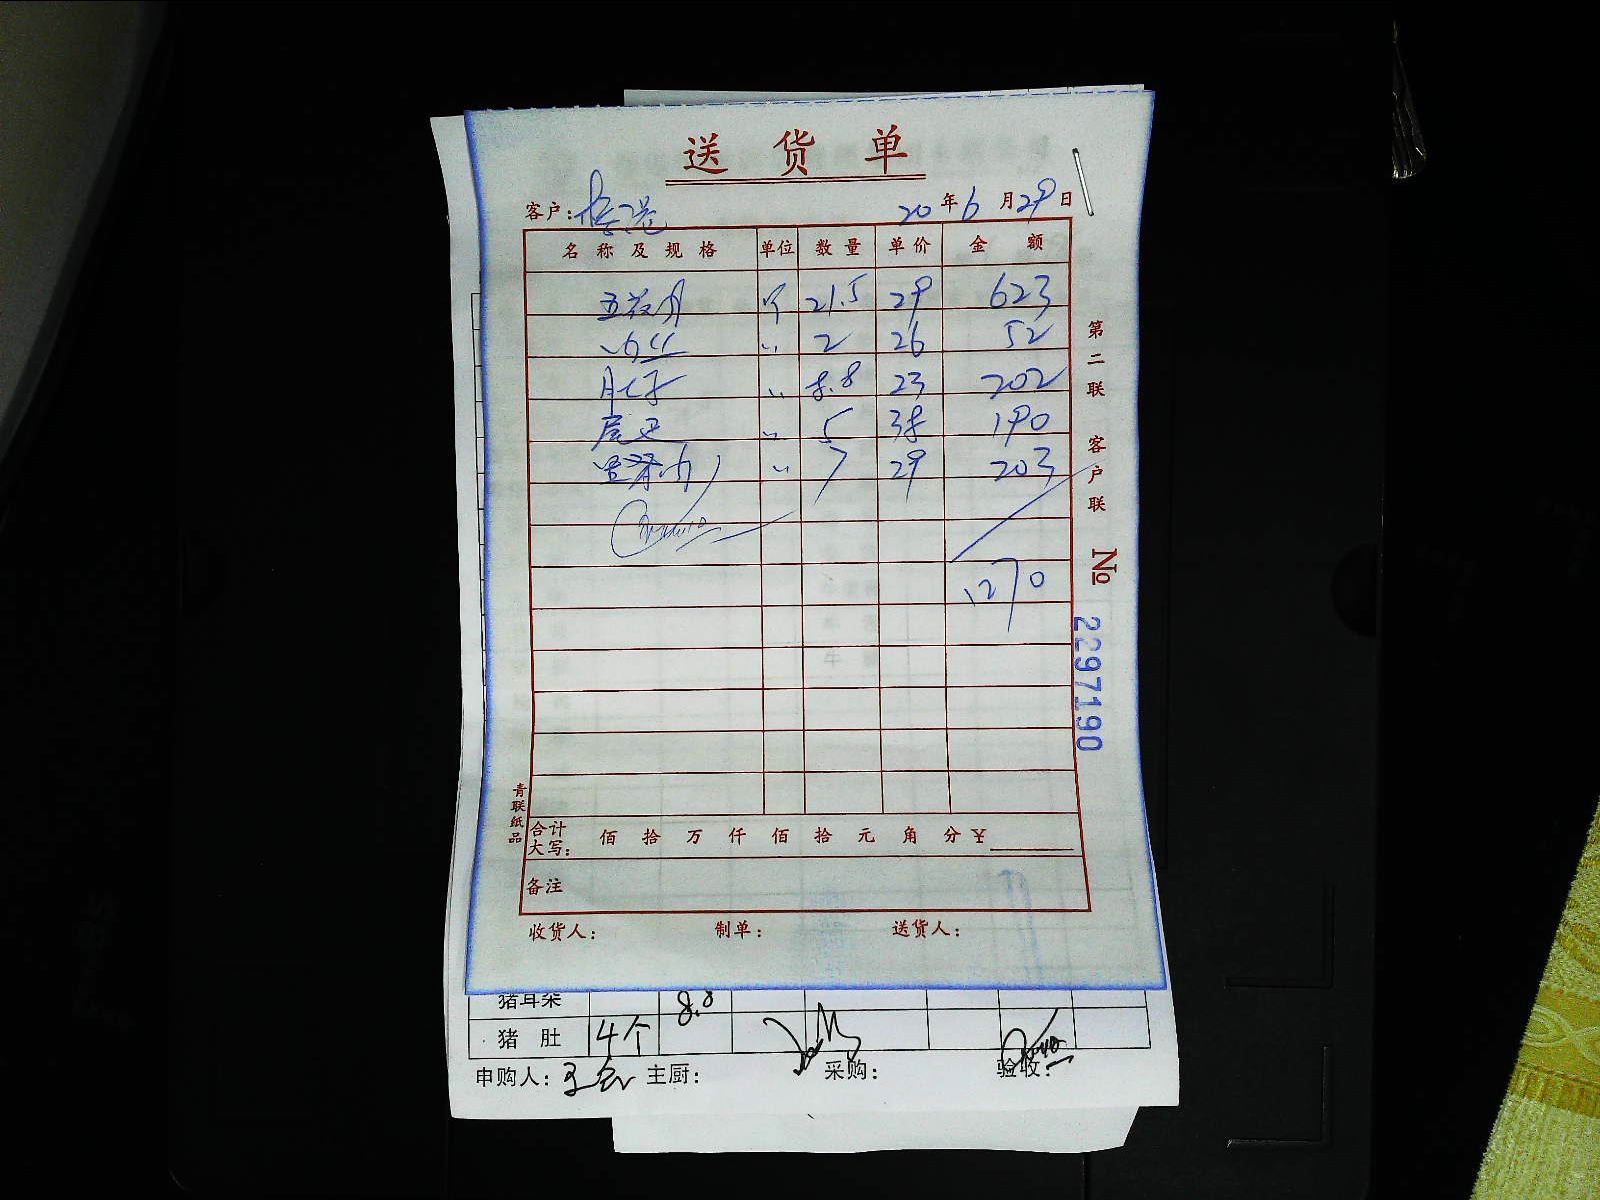 送货单
客户: 20年6月29日
名称及规格 单位 数量 单价 金额
五花肉 斤 21.5 29 623
肉丝 〃 2 26 52
肚子 〃 8.8 23 202
尾巴 〃 5 38 190
〃 7 29 203
1270
第二联 客户联 № 2297190
青联纸品
合计大写: 佰 拾 万 仟 佰 拾 元 角 分 ¥
备注
收货人: 制单: 送货人:
猪耳朵 8.8
猪肚 4个
申购人: 主厨: 采购: 验收: